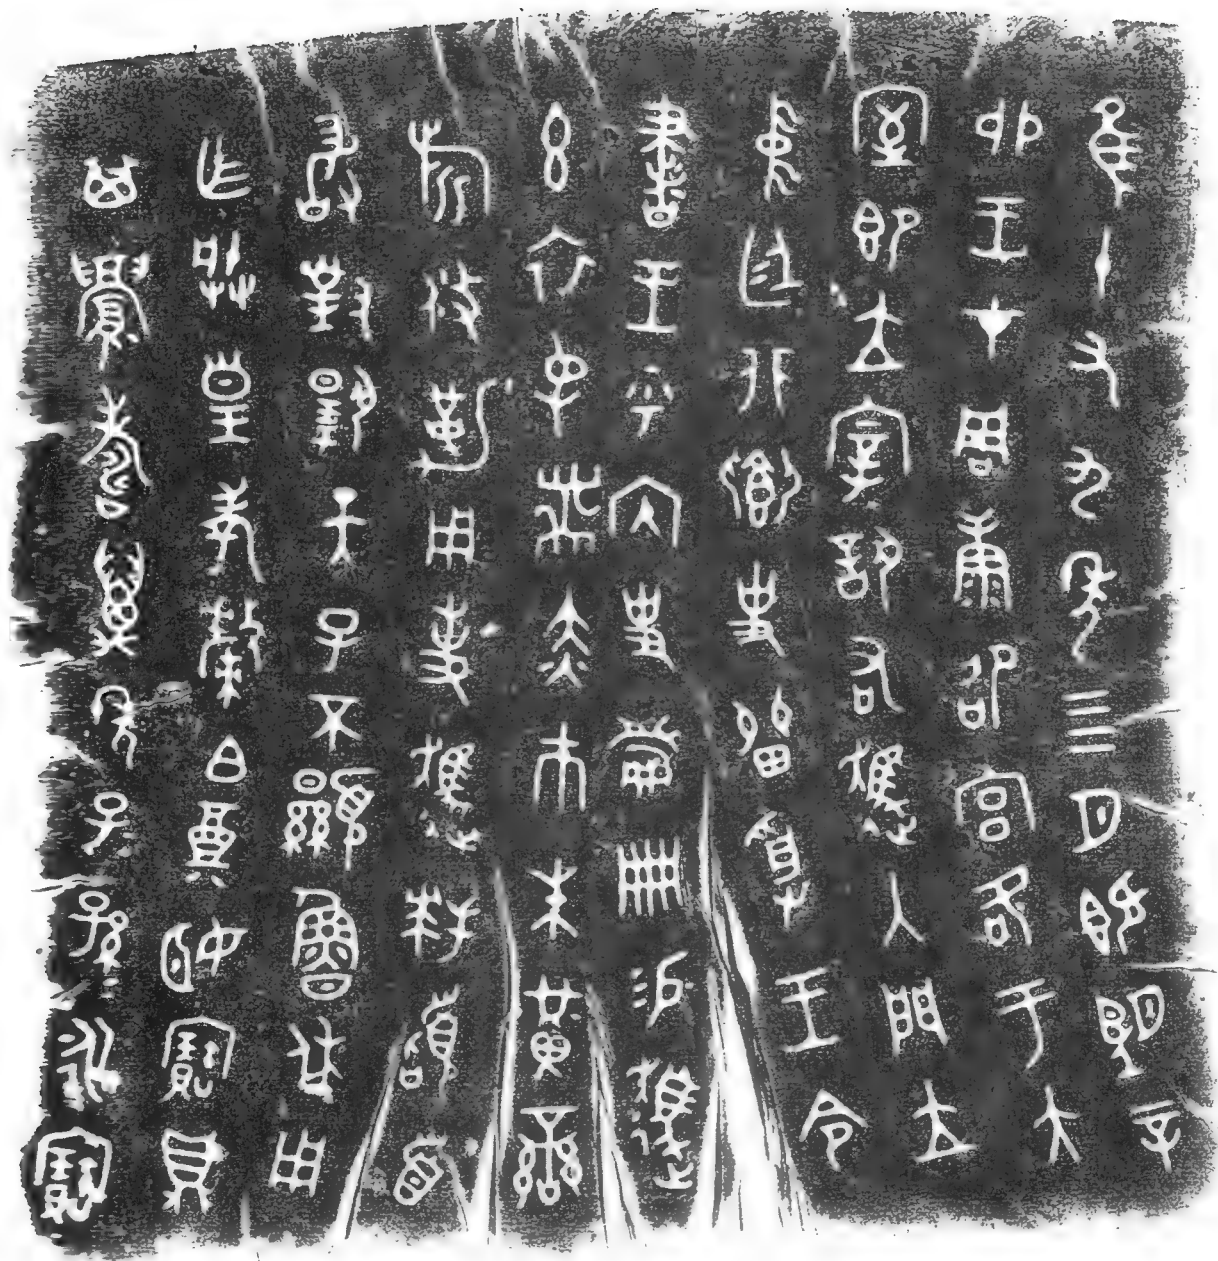 隹十又九年四月既望辛
卯王才周康卲宮各于大
室即立宰訊右趞入門立
中廷北鄉史留受王令
書王乎內史冊易趞
玄衣屯黹赤巿朱黃䜌
旂攸勒用事趞拜𩒨首
敢對揚天子不顯魯休用
乍朕皇考斄白奠姬寶鼎
其眉壽萬年子孫永寶